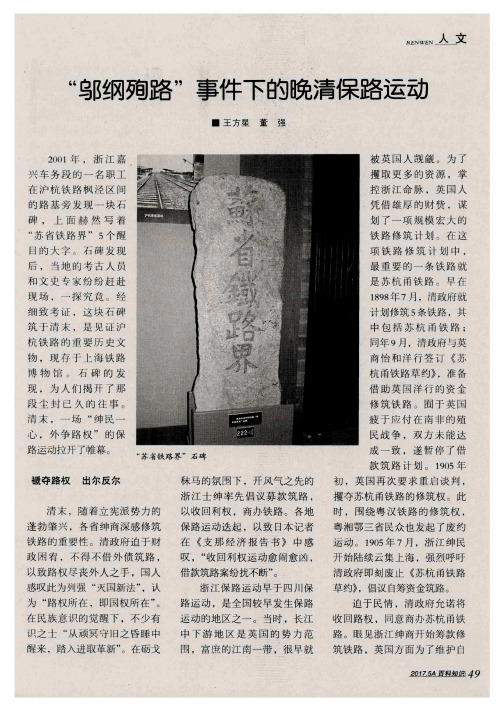 RENWEN 人 文
“邬纲殉路”事件下的晚清保路运动
■ 王方星 董 强
2001 年，浙江嘉
兴车务段的一名职工
在沪杭铁路枫泾区间
的路基旁发现一块石
碑，上面赫然写着
“苏省铁路界”5 个醒
目的大字。石碑发现
后，当地的考古人员
和文史专家纷纷赶赴
现场，一探究竟。经
细致考证，这块石碑
筑于清末，是见证沪
杭铁路的重要历史文
物，现存于上海铁路
博物馆。石碑的发
现，为人们揭开了那
段尘封已久的往事。
清末，一场“绅民一
心，外争路权”的保
路运动拉开了帷幕。
褫夺路权 出尔反尔
清末，随着立宪派势力的
蓬勃肇兴，各省绅商深感修筑
铁路的重要性。清政府迫于财
政困宥，不得不借外债筑路，
以致路权尽丧外人之手，国人
感叹此为列强“灭国新法”，认
为“路权所在，即国权所在”。
在民族意识的觉醒下，不少有
识之士“从顽冥守旧之昏睡中
醒来，踏入进取革新”。在砺戈
蘇省鐵路界
222-1
“苏省铁路界”石碑
秣马的氛围下，开风气之先的
浙江士绅率先倡议募款筑路，
以收回利权，商办铁路。各地
保路运动迭起，以致日本记者
在《支那经济报告书》中感
叹，“收回利权运动愈闹愈凶，
借款筑路案纷扰不断”。
浙江保路运动早于四川保
路运动，是全国较早发生保路
运动的地区之一。当时，长江
中下游地区是英国的势力范
围，富庶的江南一带，很早就
被英国人觊觎。为了
攫取更多的资源，掌
控浙江命脉，英国人
凭借雄厚的财货，谋
划了一项规模宏大的
铁路修筑计划。在这
项铁路修筑计划中，
最重要的一条铁路就
是苏杭甬铁路。早在
1898 年 7 月，清政府就
计划修筑 5 条铁路，其
中包括苏杭甬铁路；
同年 9 月，清政府与英
商怡和洋行签订《苏
杭甬铁路草约》，准备
借助英国洋行的资金
修筑铁路。囿于英国
疲于应付在南非的殖
民战争，双方未能达
成一致，遂暂停了借
款筑路计划。1905 年
初，英国再次要求重启谈判，
攫夺苏杭甬铁路的修筑权。此
时，围绕粤汉铁路的修筑权，
粤湘鄂三省民众也发起了废约
运动。1905 年 7 月，浙江绅民
开始陆续云集上海，强烈呼吁
清政府即刻废止《苏杭甬铁路
草约》，倡议自筹资金筑路。
迫于民情，清政府允诺将
收回路权，同意商办苏杭甬铁
路。眼见浙江绅商开始筹款修
筑铁路，英国方面为了维护自
2017.5A 百科知识 49